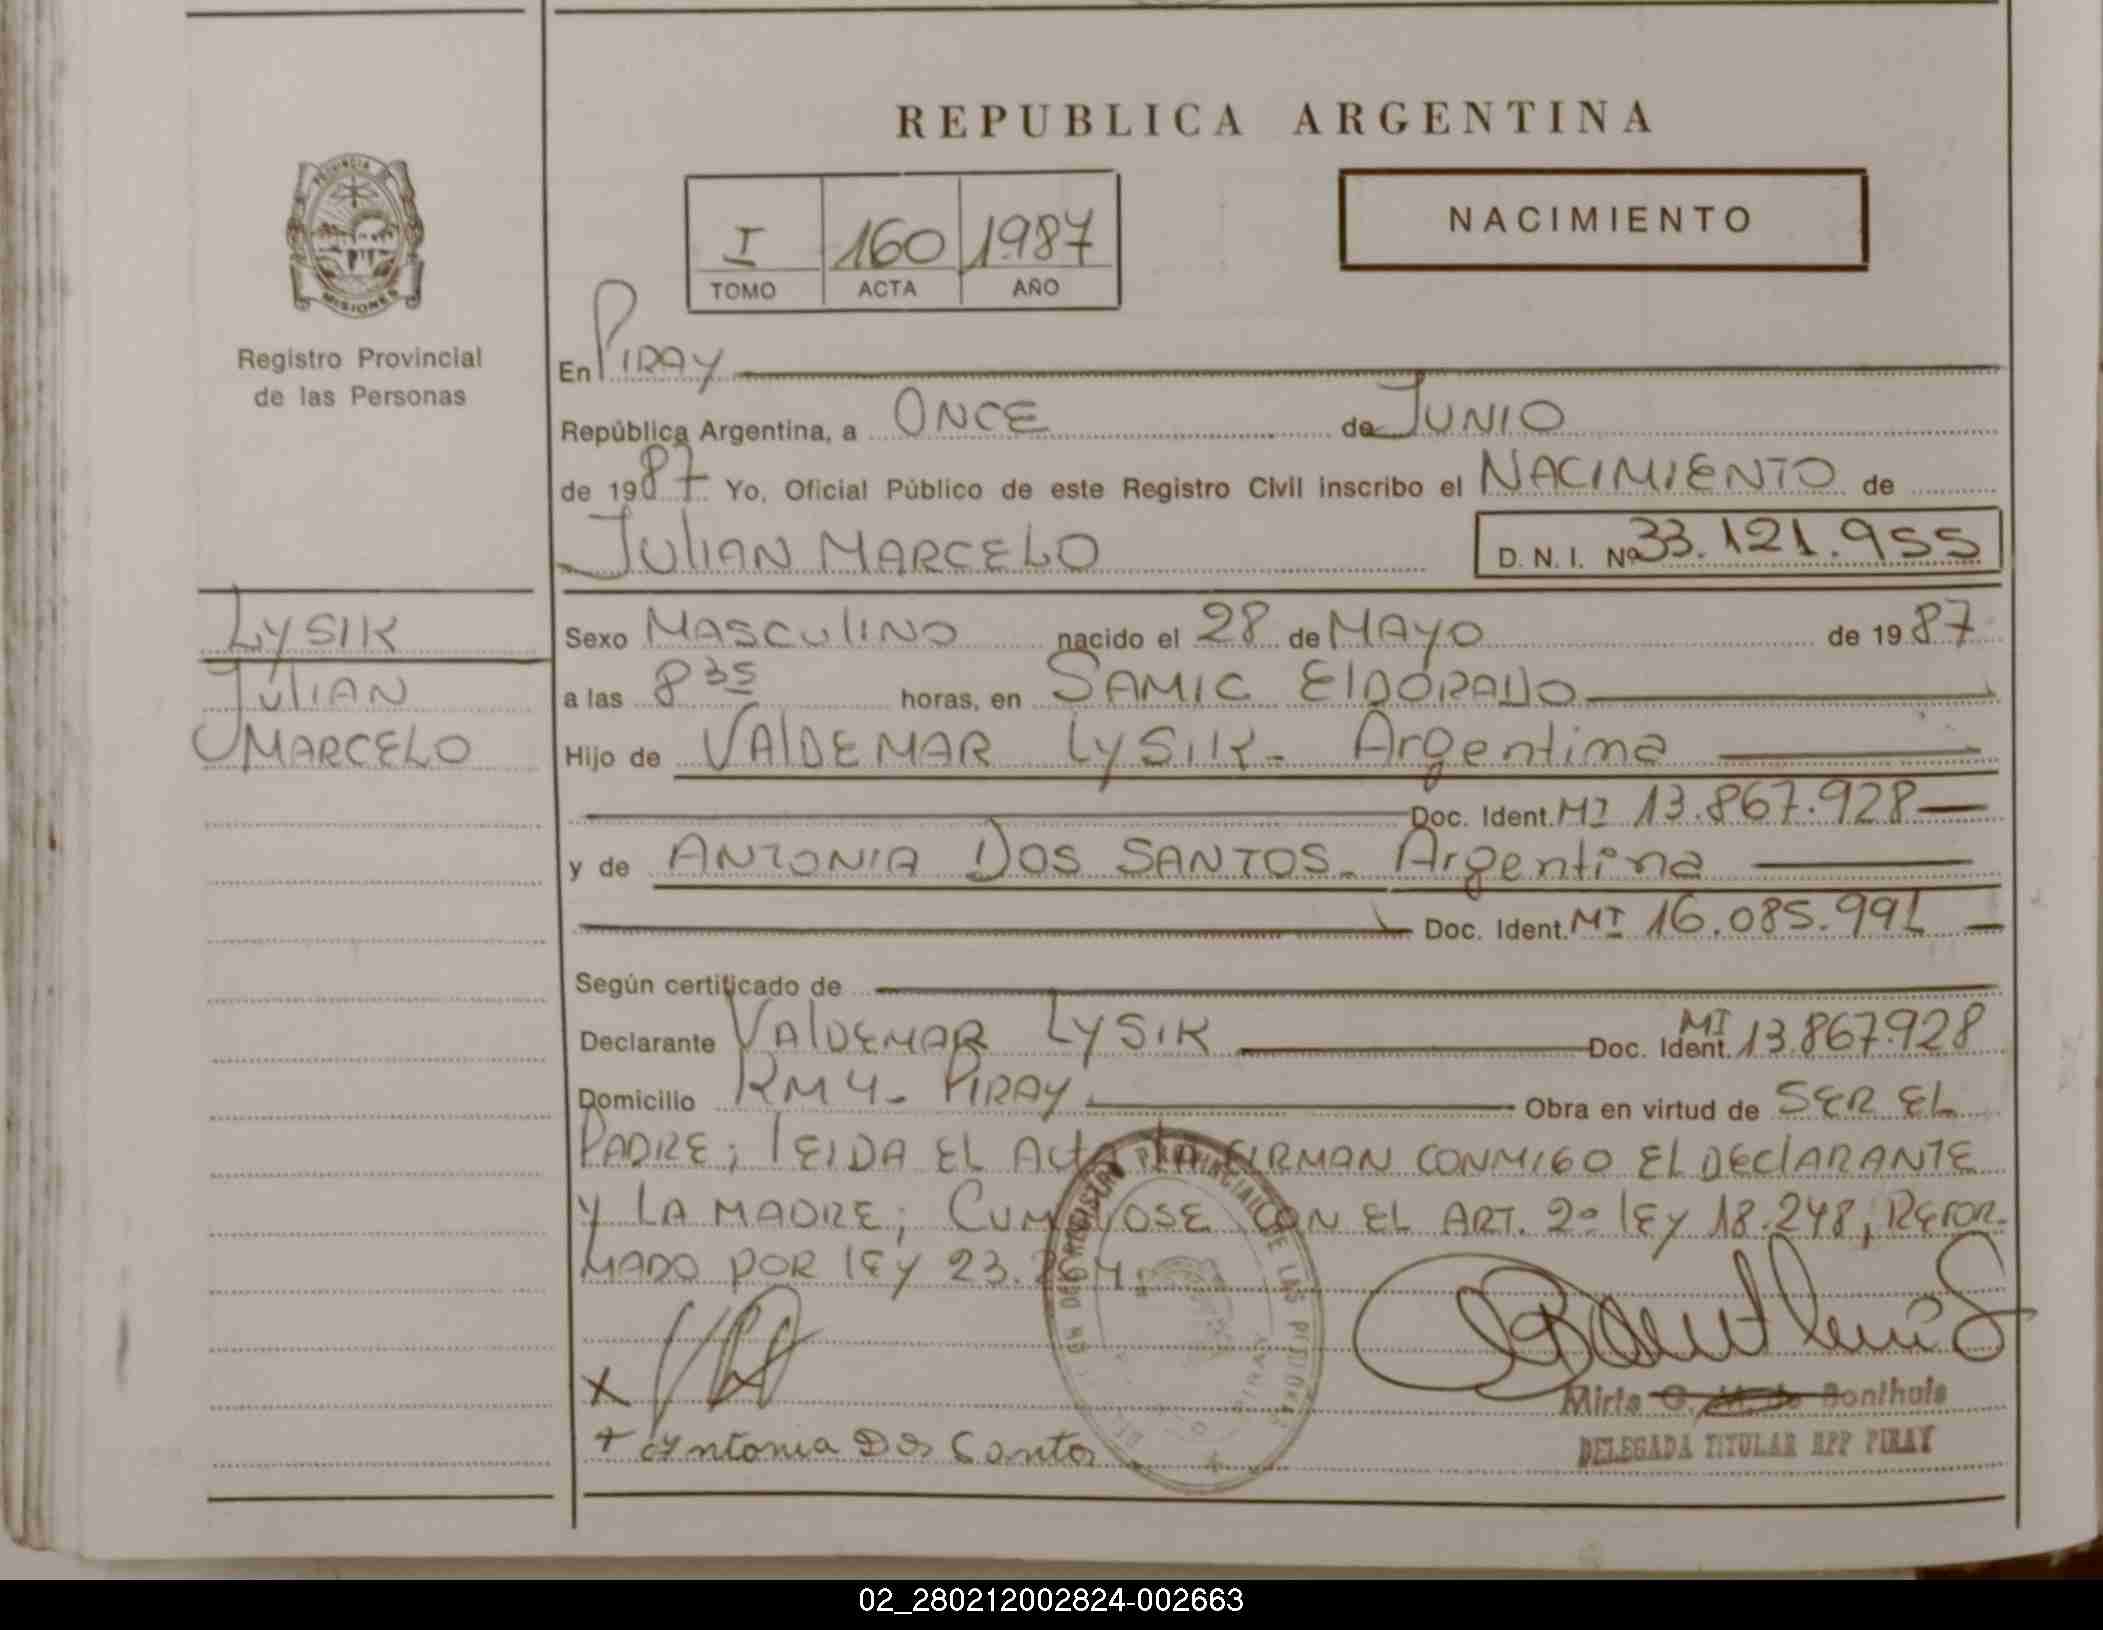 REPUBLICA ARGENTINA
PROVINCIA DE
MISIONES
Registro Provincial
de las Personas
I 160 1987
TOMO ACTA AÑO
NACIMIENTO
En PIRAY
República Argentina, a ONCE de JUNIO
de 1987 Yo, Oficial Público de este Registro Civil inscribo el NACIMIENTO de
JULIAN MARCELO D. N. I. Nº 33.121.955
LYSIK
JULIAN
MARCELO
Sexo MASCULINO nacido el 28 de MAYO de 1987
a las 8 35 horas, en SAMIC ElDORADO
Hijo de VAlDEMAR LYSIK - Argentina
Doc. Ident. MI 13.867.928
y de ANTONIA DOS SANTOS - Argentina
Doc. Ident. MI 16.085.991
Según certificado de
Declarante VAlDEMAR LYSIK Doc. Ident. MI 13.867.928
Domicilio KM 4 - PIRAY Obra en virtud de SER EL
PADRE; lEIDA EL ACTA LA FIRMAN CONMIGO EL DEClARANTE
Y LA MADRE; CUMPLIOSE CON EL ART. 2º lEY 18.248, REFOR-
MADO POR lEY 23.264.
REGISTRO PROVINCIAL DE LAS PERSONAS
PIRAY
x
+ Antonia Dos Santos
Mirta G. M. de Bonthuis
DELEGADA TITULAR RPP PIRAY
02_280212002824-002663